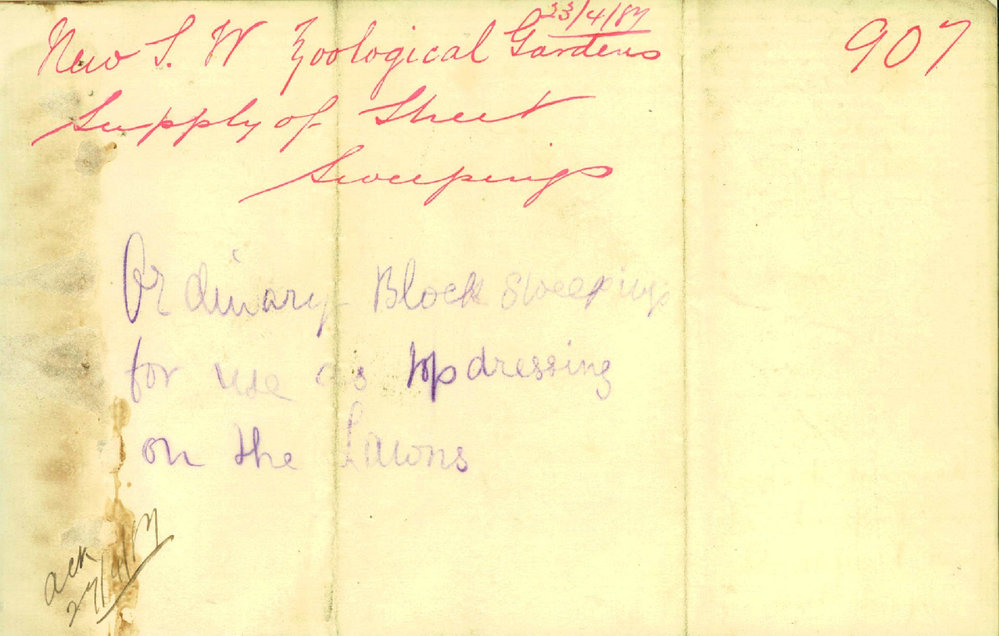 23/4/87
New S. W Zoological Gardens
907
Supply of Street
Sweepings
Ordinary Block sweepings
for use as top dressing
on the Lawns
ack
27/4/87